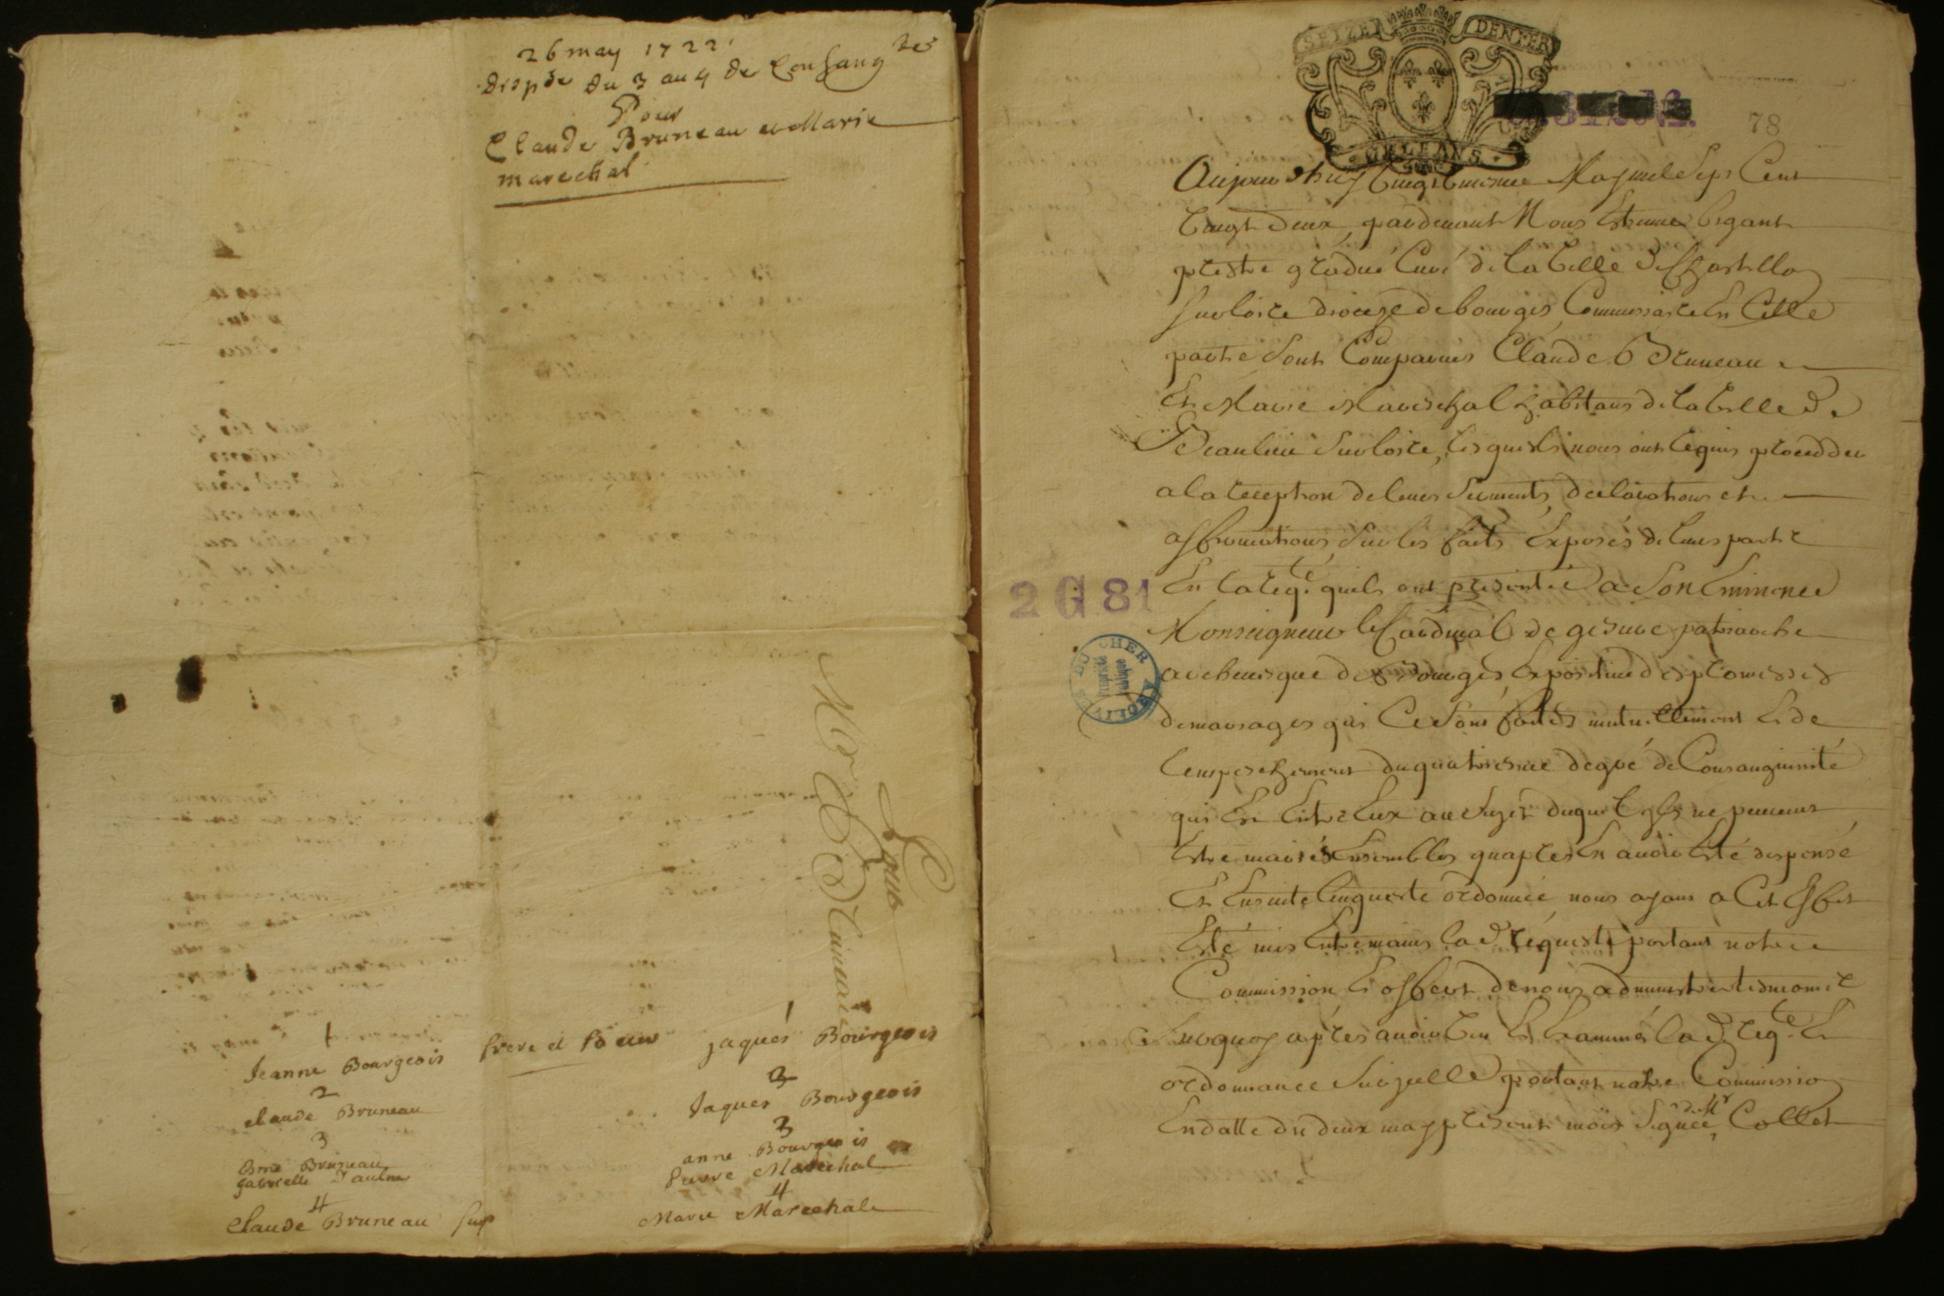 26 may 1722
dispse du 3 au 4 de Consang tes
Pour
Claude Bruneau et Marie
marechal
Pour
Mr C Bruneau
1
Jeanne Bourgeois frere et soeur jaques Bourgeois
2
claude Bruneau
2
Jaques Bourgeois
3
Bruneau
gabrielle
3
anne Bourgeois
pierre Marechal
4
Claude Bruneau sup
4
Marie Marechale
SEIZE DENIER
ORLEANS
78
Aujourdhuy vingtsixiesme May mil Sept Cent
vingt deux, pardevant Nous Estienne bigant
prestre gradué Curé de la ville de Chastillon
sur loire dioceze de bourges Commissaire En Cette
partie sont Comparus Claude Bruneau
Et Marie Mareschal habitans de la ville de
Beaulieu sur loire, lesquels nous ont requis proceder
a la reception de leurs serments, declarations et
affirmations sur les faits Exposés de leur part
En la reqte quils ont presentée a Son Eminence
Monseigneur le Cardinal de gesvre patriarche
archevesque de Bourges Expositive des promesses
de mariages qui Ce sont faites mutuellement Et de
lempeschement du quatriesme degré de Consanguinité
qui Est Entre Eux au sujet duquel ils ne peuvent
Estre mariés Ensembles quapres En avoir Esté dispensé
Et Ensuite lenqueste ordonnée nous ayant a Cet Effet
Esté mis Entre mains lad. requeste portant notre
Commission Et offert de nous administrer tesmoins
Surquoy apres avoir veu Et Examiné lad. reqte Et
ordonnance sur jcelle portant notre Commission
En datte du deux may present mois Signée de Mr Collet
2 G 81
ARCHIVES DU CHER